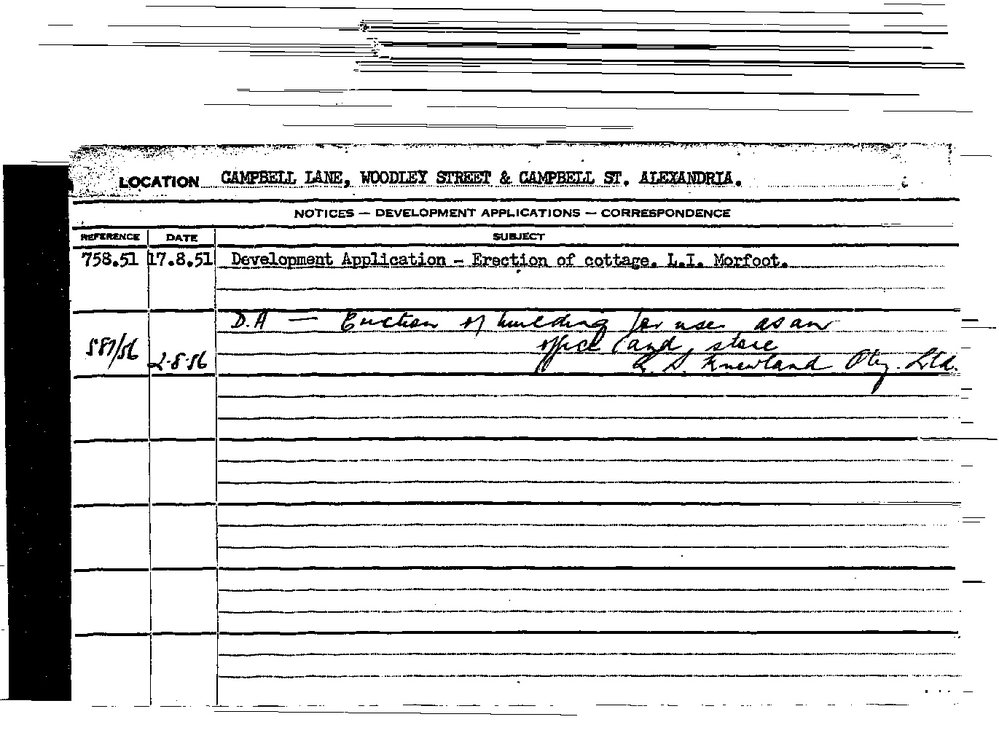 LOCATION CAMPBELL LANE, WOODLEY STREET & CAMPBELL ST. ALEXANDRIA.
NOTICES — DEVELOPMENT APPLICATIONS — CORRESPONDENCE
REFERENCE DATE SUBJECT
758.51 17.8.51 Development Application - Erection of cottage. L.I. Morfoot.
D.A — Erection of building for use as an
587/56 office and store
2.8.56 Pty. Ltd.